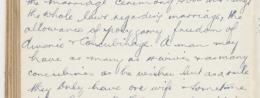 the marriage ceremony
the whole laws regarding marriage, the
allowance of polygamy freedom of
divorce & Concubinage. A man may
have as many as wives & as many
concubines as he wishes but as a rule
they only have one wife - sometimes